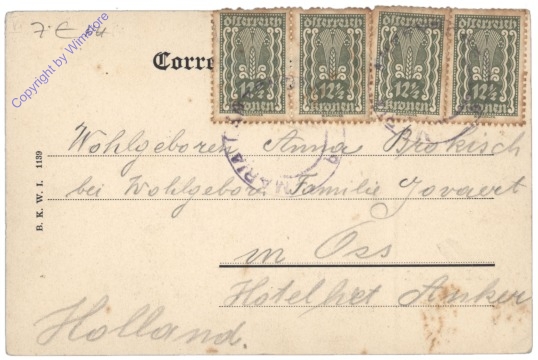 7.E
Copyright by Winstore
Corre
österreich österreich österreich österreich
12½ 12½ 12½ 12½
kronen kronen kronen kronen
MARIA
Wohlgeboren Anna Brokisch
bei Wohlgebor. Familie Jovaert
in Oss
Hotel het Anker
Holland.
B. K. W. I. 1139